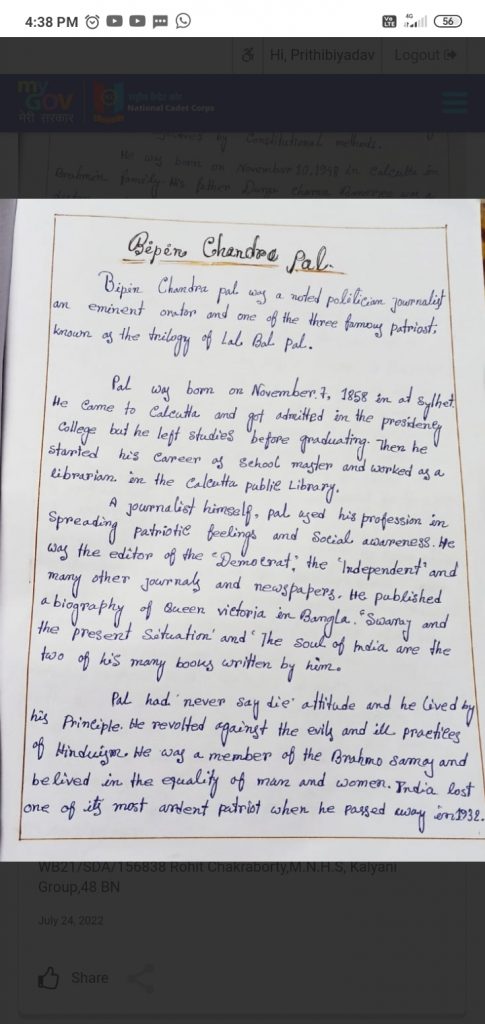 4:38 PM
Vo LTE 4G 56
Hi, Prithibiyadav Logout
my GOV मेरी सरकार
राष्ट्रीय कैडेट कोर
National Cadet Corps
by Constitutional methods.
He was born on November 10, 1948 in Calcutta in
Brahmin family. His father Durga Charan Banerjee was a
Bipin Chandra Pal.
Bipin Chandra pal was a noted politician journalist
an eminent orator and one of the three famous patriost,
known as the trilogy of Lal Bal Pal.
Pal was born on November.7, 1858 in at Sylhet
He came to Calcutta and got admitted in the presidency
College but he left studies before graduating. Then he
started his career as School master and worked as a
librarian in the Calcutta public Library.
A journalist himself, pal used his profession in
Spreading patriotic feelings and Social awareness. He
was the editor of the "Democrat", the 'Independent' and
many other journals and newspapers. He published
a biography of Queen victoria in Bangla. "Swaraj and
the present Situation' and 'The Soul of India are the
two of his many books written by him.
Pal had 'never say die' attitude and he lived by
his Principle. He revolted against the evils and ill practices
of Hinduism. He was a member of the Brahmo samaj and
belived in the equality of man and women. India lost
one of its most ardent patriot when he passed away in 1932.
WB21/SDA/156838 Rohit Chakraborty,M.N.H.S, Kalyani
Group,48 BN
July 24, 2022
Share